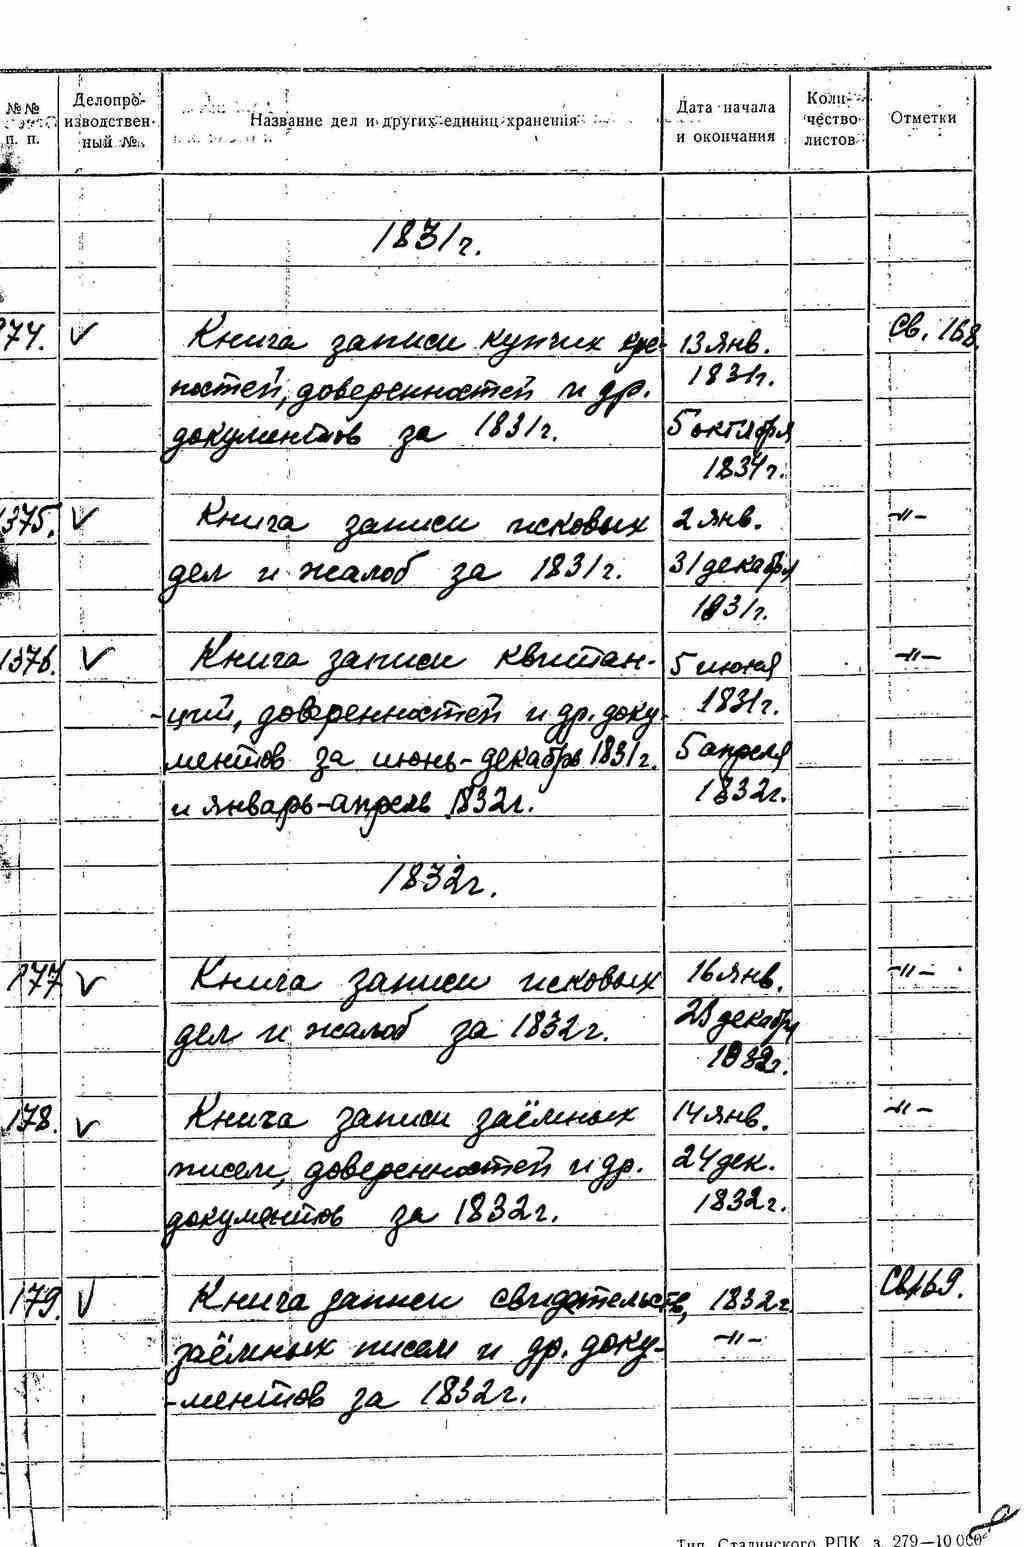 №№ п. п. Делопроизводственный № Название дел и других единиц хранения Дата начала и окончания Количество листов Отметки
1831г.
374. V Книга записи купчих кре- 13 янв. Св. 168.
постей, доверенностей и др. 1831г.
документов за 1831г. 5 октября
1831г.
1375. V Книга записи исковых 2 янв. -"-
дел и жалоб за 1831г. 31 декабря
1831г.
1376. V Книга записи квитан- 5 июня -"-
-ций, доверенностей и др. доку- 1831г.
ментов за июнь-декабрь 1831г. 5 апреля
и январь-апрель 1832г. 1832г.
1832г.
177 V Книга записи исковых 16 янв. -"-
дел и жалоб за 1832г. 28 декабря
1832г.
178. V Книга записи заёмных 14 янв. -"-
писем, доверенностей и др. 24 дек.
документов за 1832г. 1832г.
179. V Книга записи свидетельств, 1832г Св169.
заёмных писем и др. доку- -"-
-ментов за 1832г.
Тип. Сталинского РПК. з. 279—10 000